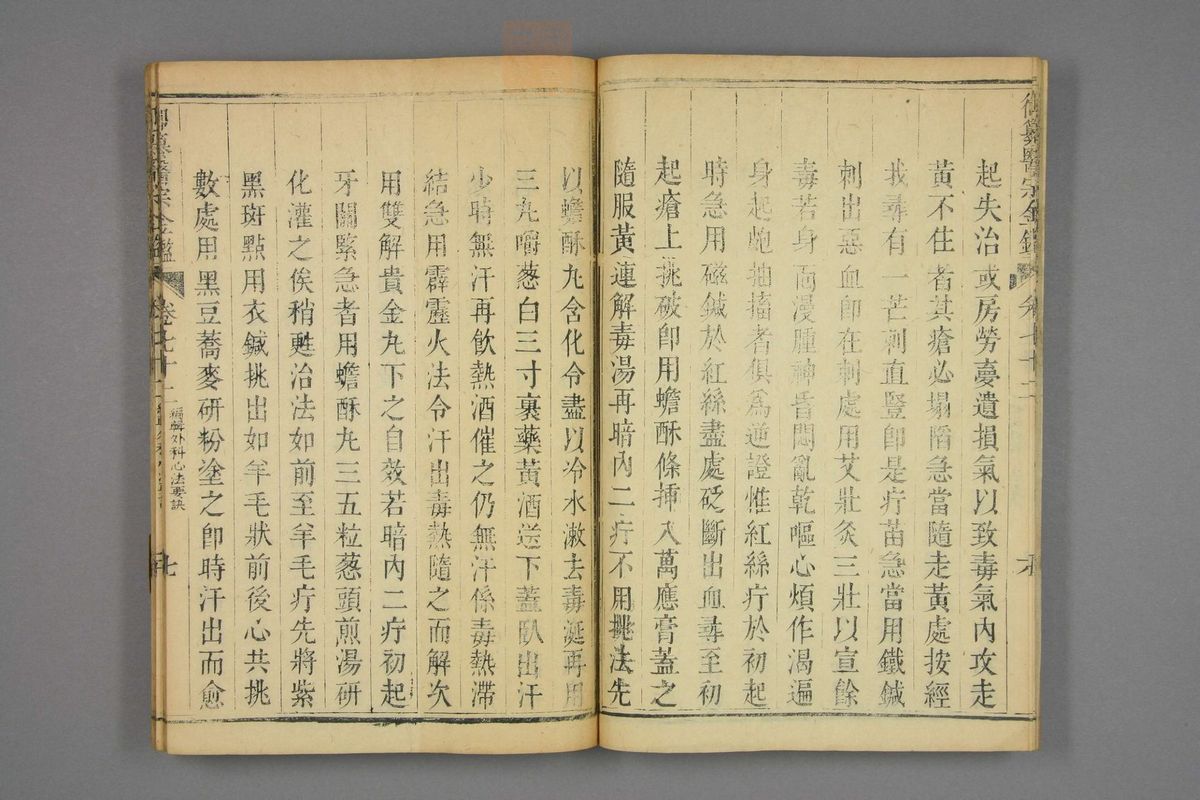 御纂醫宗金鑑 卷七十二
起失治或房勞夢遺損氣以致毒氣內攻走
黃不住者其瘡必塌陷急當隨走黃處按經
找尋有一芒刺直豎卽是疔苗急當用鐵鍼
刺出惡血卽在刺處用艾壯灸三壯以宣餘
毒若身面漫腫神昏悶亂乾嘔心煩作渴遍
身起皰抽搐者俱爲逆證惟紅絲疔於初起
時急用磁鍼於紅絲盡處砭斷出血尋至初
起瘡上挑破卽用蟾酥條揷入萬應膏蓋之
隨服黃連解毒湯再暗內二疔不用挑法先
以蟾酥丸含化令盡以冷水漱去毒涎再用
三丸嚼葱白三寸裹藥黃酒送下蓋臥出汗
少時無汗再飮熱酒催之仍無汗係毒熱滯
結急用霹靂火法令汗出毒熱隨之而解次
用雙解貴金丸下之自效若暗內二疔初起
牙關緊急者用蟾酥丸三五粒葱頭煎湯研
化灌之俟稍甦治法如前至羊毛疔先將紫
黑斑點用衣鍼挑出如羊毛狀前後心共挑
數處用黑豆蕎麥研粉塗之卽時汗出而愈
御纂醫宗金鑑 卷七十二 編輯外科心法要訣 七